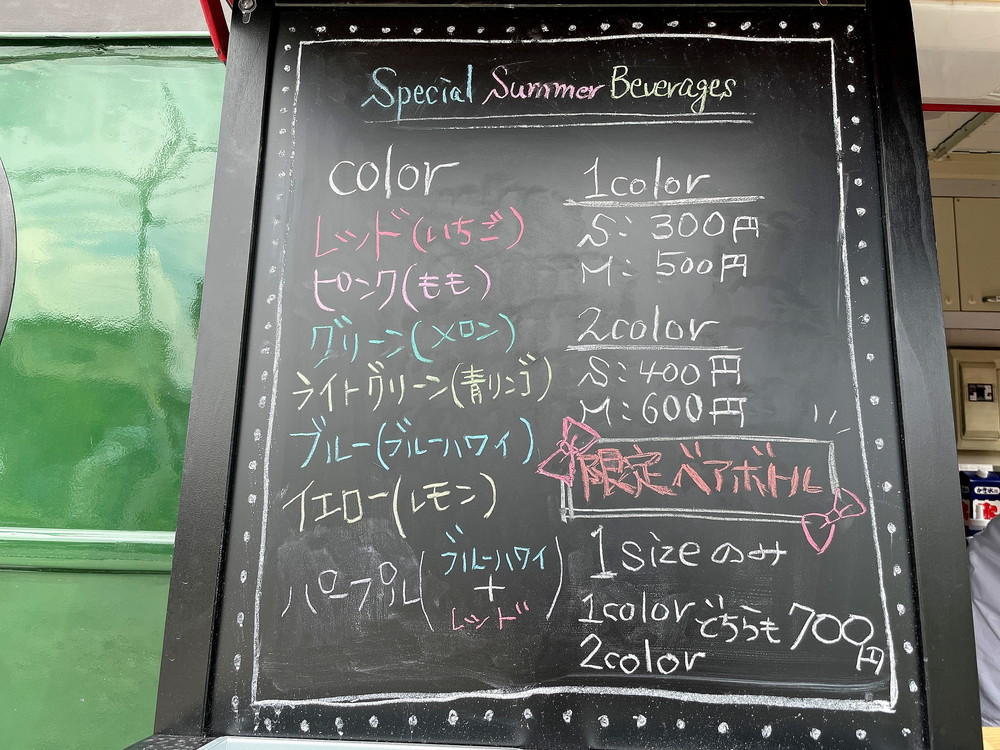 Special Summer Beverages
color
レッド(いちご)
ピンク(もも)
グリーン(メロン)
ライトグリーン(青リンゴ)
ブルー(ブルーハワイ)
イエロー(レモン)
パープル(ブルーハワイ
+
レッド)
1color
S: 300円
M: 500円
2color
S: 400円
M: 600円
限定ベアボトル
1sizeのみ
1color どちらも 700円
2color